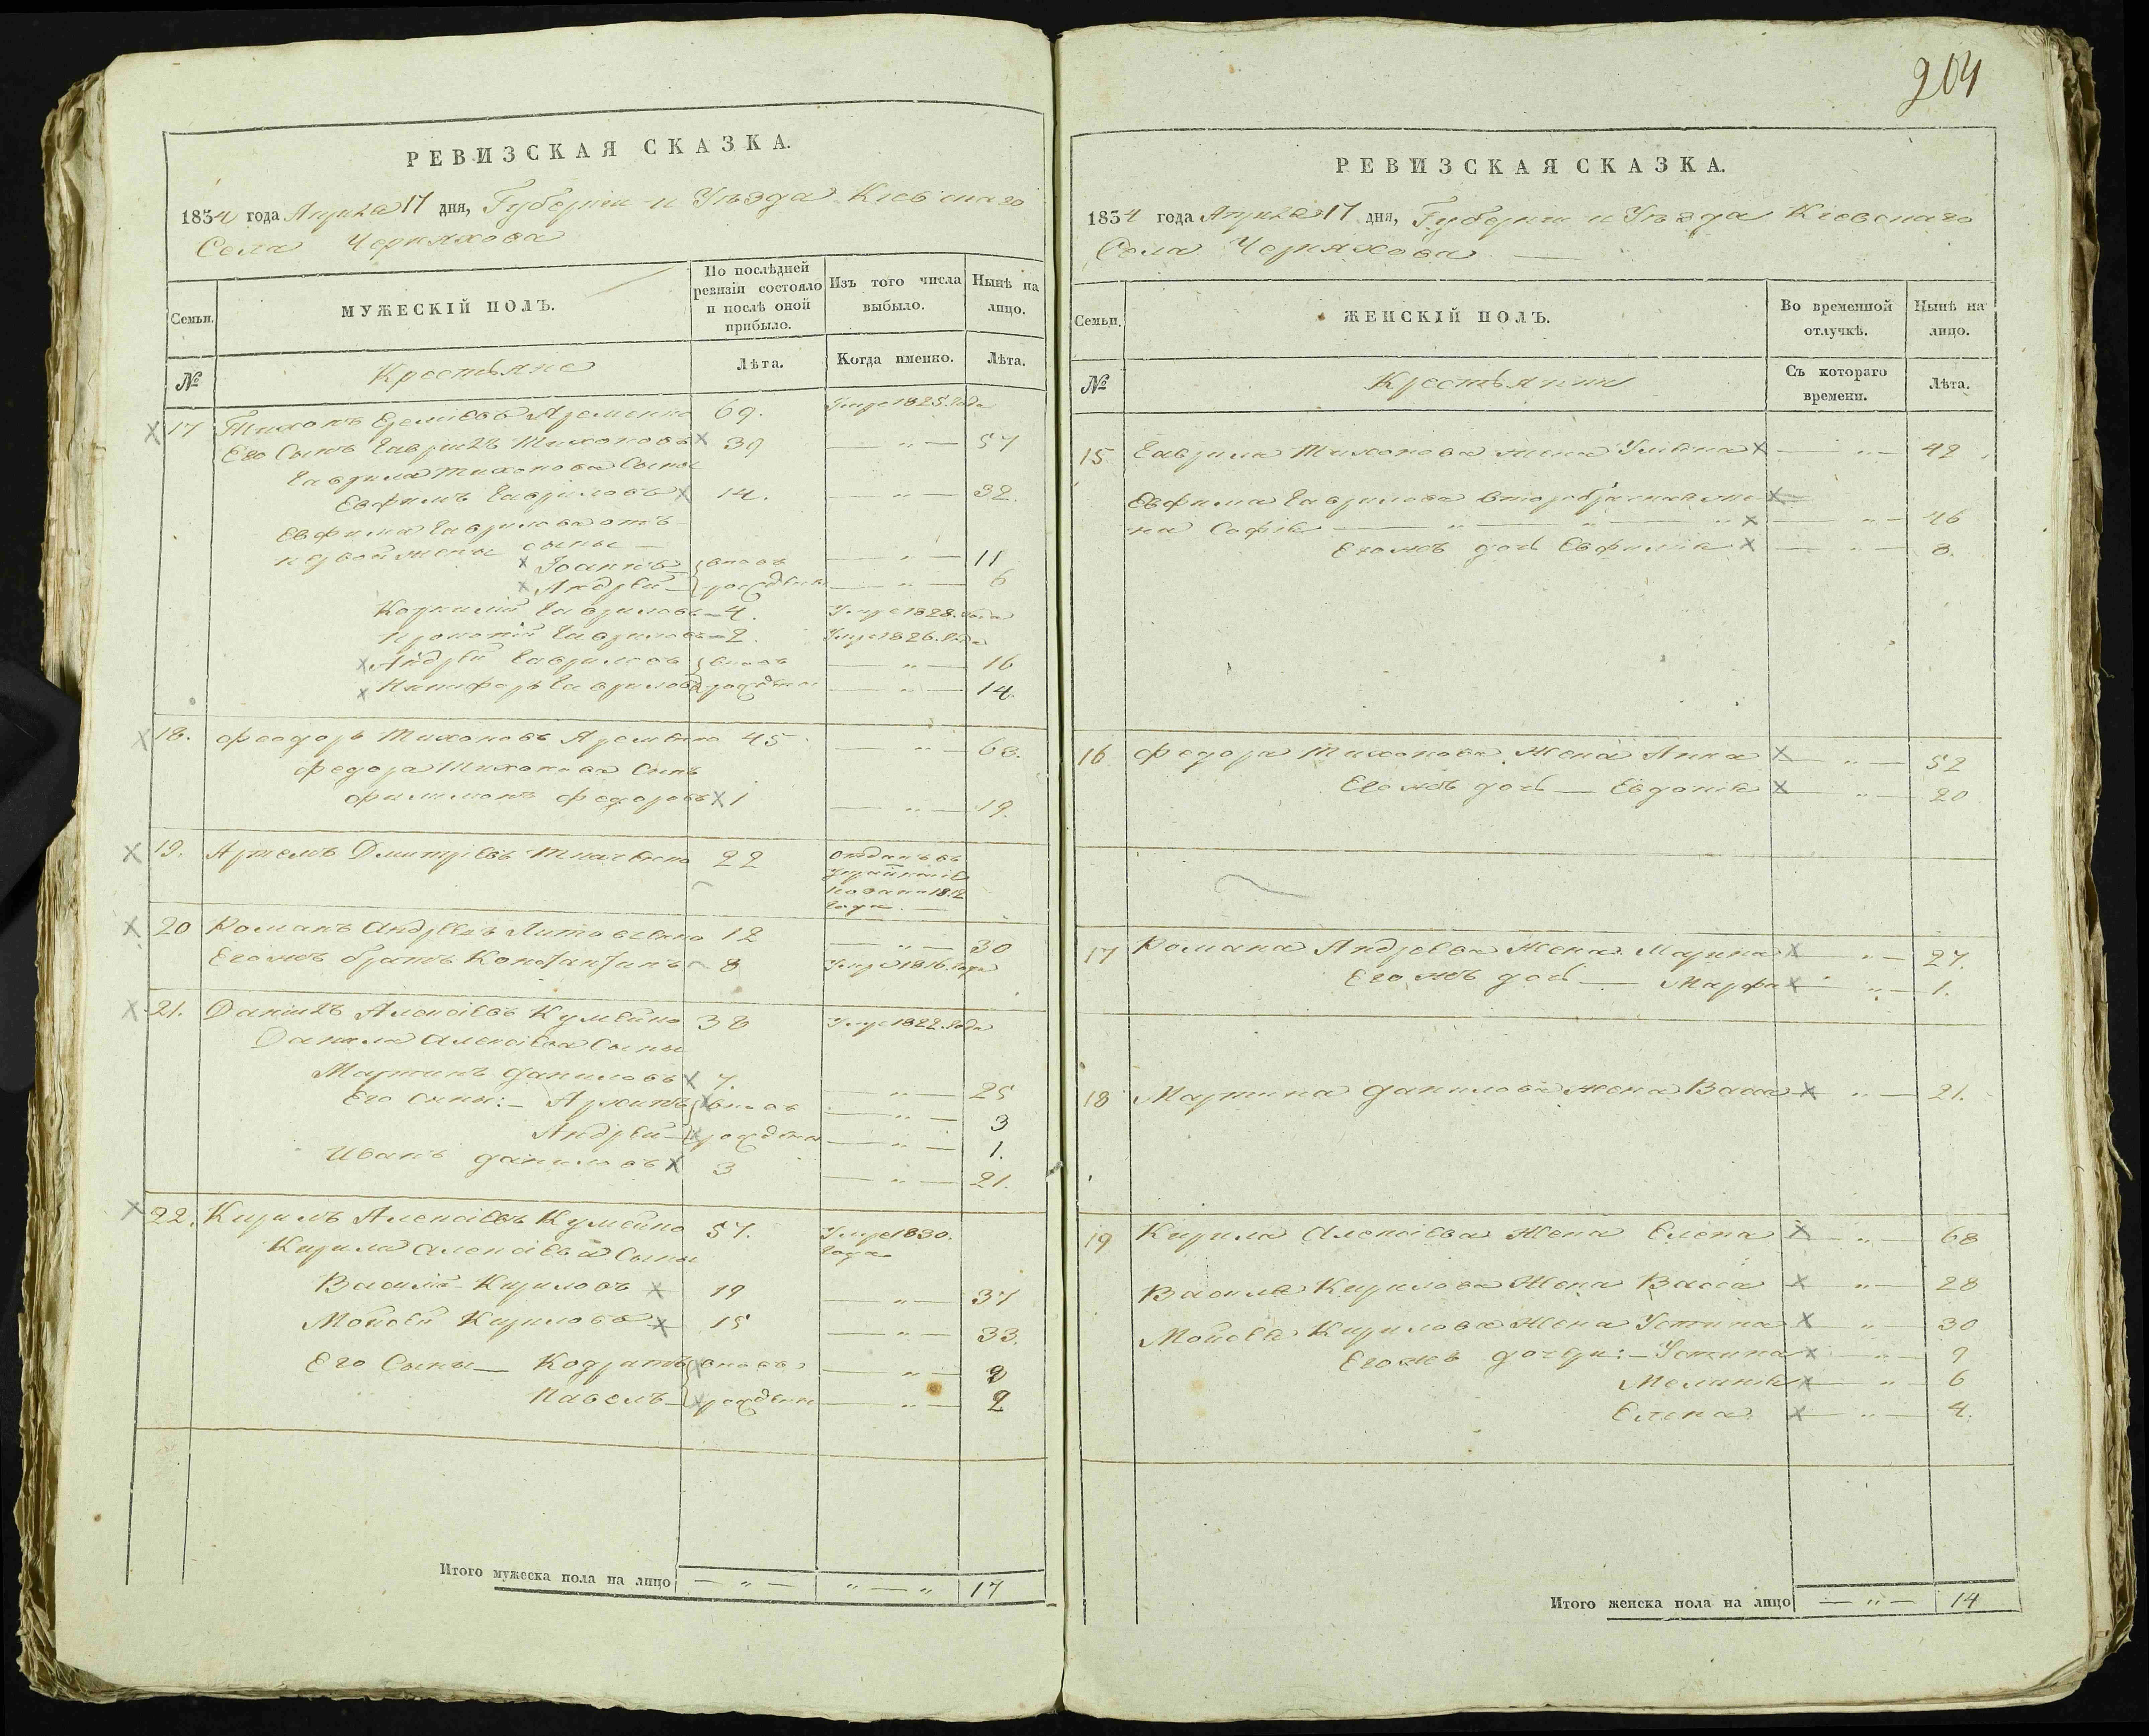 РЕВИЗСКАЯ СКАЗКА.
1834 года Апреля 17 дня, Губернии и Уезда Кіевскаго
Села Черняхова
Семьи. МУЖЕСКІЙ ПОЛЪ. По послѣдней ревизіи состояло и послѣ оной прибыло. Изъ того числа выбыло. Нынѣ на лицо.
№ Крестьяне Лѣта. Когда именно. Лѣта.
17 Тихонъ Еремѣевъ 69. Умре 1825. Года
Его Сынъ Гаврiилъ Тихоновъ 39 — " — 57
Гаврила Тихонова Сыны
Евфимъ Гавриловъ 14. — " — 32.
Евфима Гаврилова отъ
первой жены сыны —
Іоаннъ вновь — " — 11
Андрей рожденны — " — 6
Корнилій Гавриловъ — 4. Умре 1828. Года
Прокопій Гавриловъ — 2. Умре 1826. Года
Андрей Гавриловъ вновь — " — 16
Никифоръ Гавриловъ рождены — " — 14.
18. Феодоръ Тихоновъ 45 — " — 63.
Федора Тихонова Сынъ
Филимонъ Федоровъ 1 — " — 19.
19. Артемъ Дмитріевъ Ткаченко 22 отданъ въ
1812
года. —
20 Романъ Андреевъ 12 — " — 30
Егожъ братъ Константинъ 8 Умре 1816. Года
21. Даніилъ Алексіевъ Кумейко 38 Умре 1822. Года
Данила Алексіева Сыны
Мартинъ Даниловъ 7. — " — 25
Его Сыны: — Архипъ вновь — " — 3
Андрей — рождены — " — 1.
Иванъ Даниловъ 3 — " — 21.
22. Кирилъ Алексіевъ Кумейко 57. Умре 1830.
года
Кирила Алексіева Сыны
Василій Кириловъ 19 — " — 37
Мойсей Кириловъ 15 — " — 33.
Его Сыны — Кодратъ вновь — " —
Павелъ — рождены — " — 2
Итого мужеска пола на лицо — " — " — " 17
204
РЕВИЗСКАЯ СКАЗКА.
1834 года Апреля 17 дня, Губернии и Уезда Кіевскаго
Села Черняхова —
Семьи. ЖЕНСКІЙ ПОЛЪ. Во временной отлучкѣ. Нынѣ на лицо.
№ Крестьянки Съ котораго времени. Лѣта.
15 Гаврила Тихонова жена Уліяна — " — 42
Евфима Гаврилова второбрачная же-
на Софія — " — " — " — " — 46
Егожъ дочь Евфимія — " — 8.
16 Федора Тихонова Жена Анна — " — 52
Егожъ дочь — Евдокія — " — 20
17 Романа Андреева Жена Марина — " — 27.
Егожъ дочь — Марфа — " — 1.
18 Мартина Данилова жена Васса — " — 21.
19 Кирила Алексіева Жена Елена — " — 68
Василя Кирилова Жена Васса — " — 28
Мойсея Кирилова Жена Устина — " — 30
Егожъ дочери: — Устина — " — 9
Меланія — " 6
Елена — " — 4.
Итого женска пола на лицо — " — 14